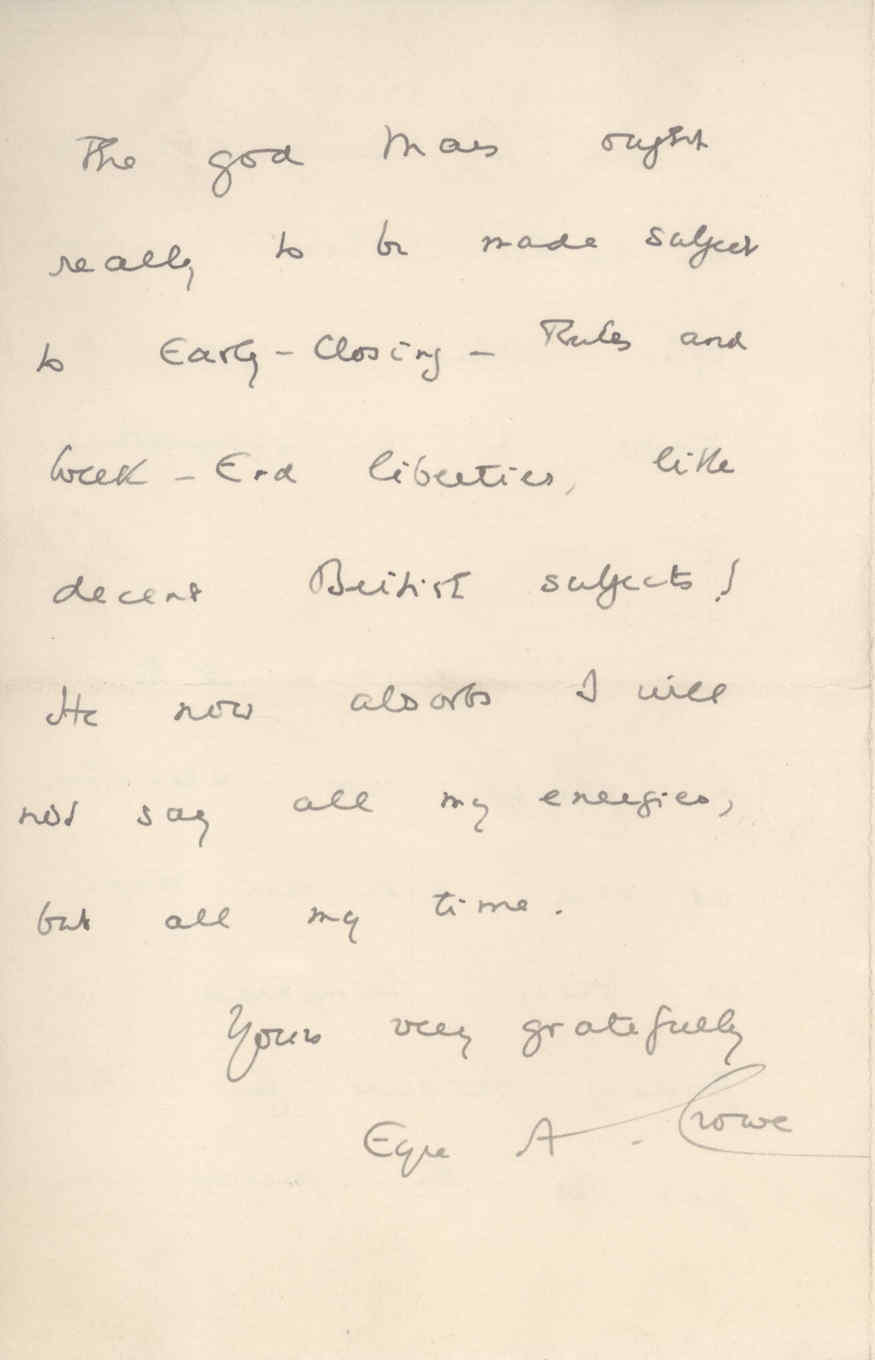 The god Mars ought
really to be made subject
to Early-Closing-Rules and
Week-End liberties, like
decent British subjects!
He now absorbs I will
not say all my energies,
but all my time.
Yours very gratefully
Eyre A. Crowe